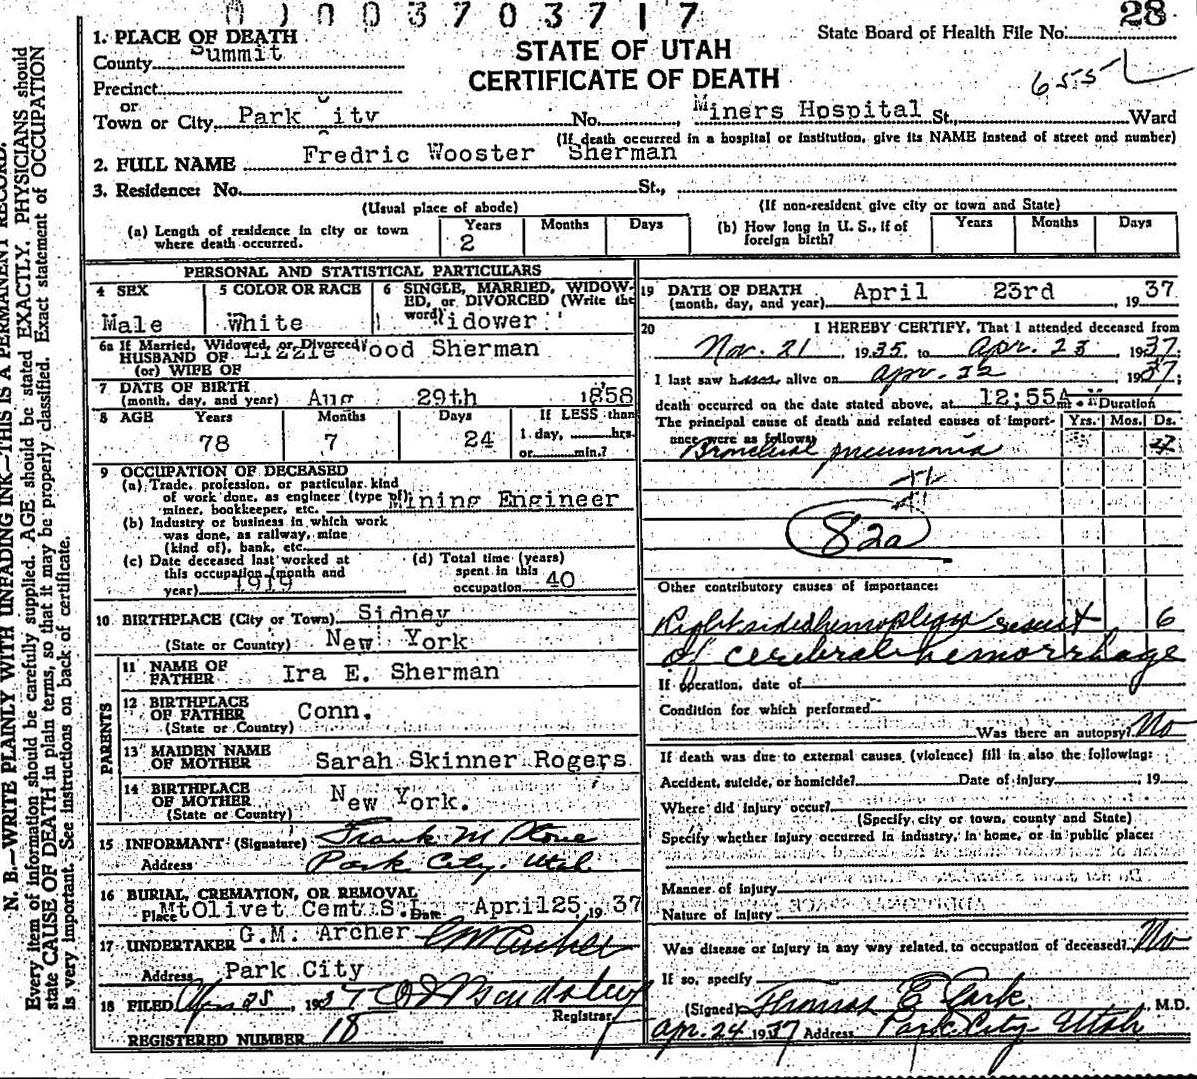 0 0 0 3 7 0 3 7 1 7
28
State Board of Health File No.
STATE OF UTAH
CERTIFICATE OF DEATH
655
1. PLACE OF DEATH
County Summit
Precinct
or
Town or City Park City No. Miners Hospital St., Ward
(If death occurred in a hospital or institution, give its NAME instead of street and number)
2. FULL NAME Fredric Wooster Sherman
3. Residence: No. St.,
(Usual place of abode) (If non-resident give city or town and State)
(a) Length of residence in city or town where death occurred. Years 2 Months Days
(b) How long in U. S., if of foreign birth? Years Months Days
PERSONAL AND STATISTICAL PARTICULARS
4 SEX Male
5 COLOR OR RACE White
6 SINGLE, MARRIED, WIDOWED, or DIVORCED (Write the word) Widower
6a If Married, Widowed, or Divorced
HUSBAND OF Lizzie Wood Sherman
(or) WIFE OF
7 DATE OF BIRTH
(month, day, and year) Aug 29th 1858
8 AGE Years 78 Months 7 Days 24 If LESS than 1 day, hrs. or min.?
9 OCCUPATION OF DECEASED
(a) Trade, profession, or particular kind
of work done, as engineer (type of)
miner, bookkeeper, etc. Mining Engineer
(b) Industry or business in which work
was done, as railway, mine
(kind of), bank, etc.
(c) Date deceased last worked at
this occupation (month and
year) 1919
(d) Total time (years)
spent in this
occupation 40
10 BIRTHPLACE (City or Town) Sidney
(State or Country) New York
PARENTS
11 NAME OF FATHER Ira E. Sherman
12 BIRTHPLACE OF FATHER Conn.
(State or Country)
13 MAIDEN NAME OF MOTHER Sarah Skinner Rogers
14 BIRTHPLACE OF MOTHER New York.
(State or Country)
15 INFORMANT (Signature) Frank M Stone
Address Park City, Utah
16 BURIAL, CREMATION, OR REMOVAL
Place MtOlivet Cemt S.L. Date April25, 1937
17 UNDERTAKER G.M. Archer GM Archer
Address Park City
18 FILED Apr 25, 1937
Registrar
REGISTERED NUMBER 18
19 DATE OF DEATH
(month, day, and year) April 23rd 1937
20 I HEREBY CERTIFY, That I attended deceased from
Nov. 21 1935, to Apr. 23 1937
I last saw h alive on Apr. 1937;
death occurred on the date stated above, at 12;55A m.
Duration
The principal cause of death and related causes of importance were as follows: Yrs. Mos. Ds.
Bronchial pneumonia
82a
Other contributory causes of importance:
Right sided hemoplegia result 6
of cerebral hemorrhage
If operation, date of
Condition for which performed
Was there an autopsy? No
If death was due to external causes (violence) fill in also the following:
Accident, suicide, or homicide? Date of injury 19
Where did injury occur?
(Specify city or town, county and State)
Specify whether injury occurred in industry, in home, or in public place:
Manner of injury
Nature of injury
Was disease or injury in any way related to occupation of deceased? No
If so, specify
(Signed) Thomas E Clark M.D.
Apr. 24 1937 Address Park City Utah
N. B.—WRITE PLAINLY WITH UNFADING INK—THIS IS A PERMANENT RECORD.
Every item of information should be carefully supplied. AGE should be stated EXACTLY. PHYSICIANS should
state CAUSE OF DEATH in plain terms, so that it may be properly classified. Exact statement of OCCUPATION
is very important. See instructions on back of certificate.